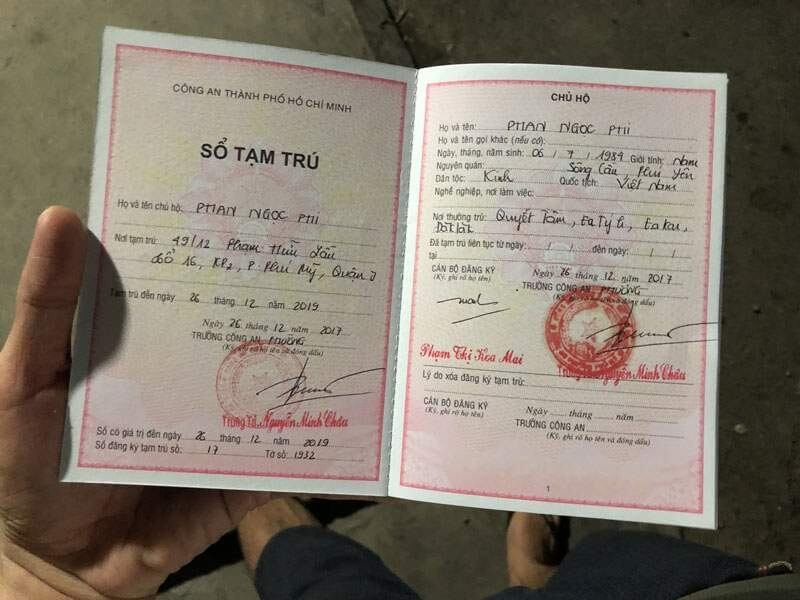 CÔNG AN THÀNH PHỐ HỒ CHÍ MINH
SỔ TẠM TRÚ
Họ và tên chủ hộ: PHAN NGỌC PHI
Nơi tạm trú: 49/12 Phạm Hữu Lầu
tổ 16, KP2, P. Phú Mỹ, Quận 7
Tạm trú đến ngày 26 tháng 12 năm 2019
Ngày 26 tháng 12 năm 2017
TRƯỞNG CÔNG AN PHƯỜNG
(Ký, ghi rõ họ tên và đóng dấu)
Trung Tá Nguyễn Minh Châu
Sổ có giá trị đến ngày 26 tháng 12 năm 2019
Số đăng ký tạm trú số: 17 Tờ số: 1932
CHỦ HỘ
Họ và tên: PHAN NGỌC PHI
Họ và tên gọi khác (nếu có):
Ngày, tháng, năm sinh: 06 / 7 / 1984 Giới tính: Nam
Nguyên quán: Sông Cầu, Phú Yên
Dân tộc: Kinh Quốc tịch: Việt Nam
Nghề nghiệp, nơi làm việc:
Nơi thường trú: Quyết Tâm, Ea Týh, Ea Kar,
Đắk Lắk
Đã tạm trú liên tục từ ngày: / / đến ngày: / /
tại
Ngày 26 tháng 12 năm 2017
CÁN BỘ ĐĂNG KÝ TRƯỞNG CÔNG AN PHƯỜNG
(Ký, ghi rõ họ tên) (Ký, ghi rõ họ tên và đóng dấu)
Phạm Thị Hoa Mai Trung Tá Nguyễn Minh Châu
Lý do xóa đăng ký tạm trú:
CÁN BỘ ĐĂNG KÝ Ngày ..... tháng ..... năm .....
(Ký, ghi rõ họ tên) TRƯỞNG CÔNG AN
(Ký, ghi rõ họ tên và đóng dấu)
1